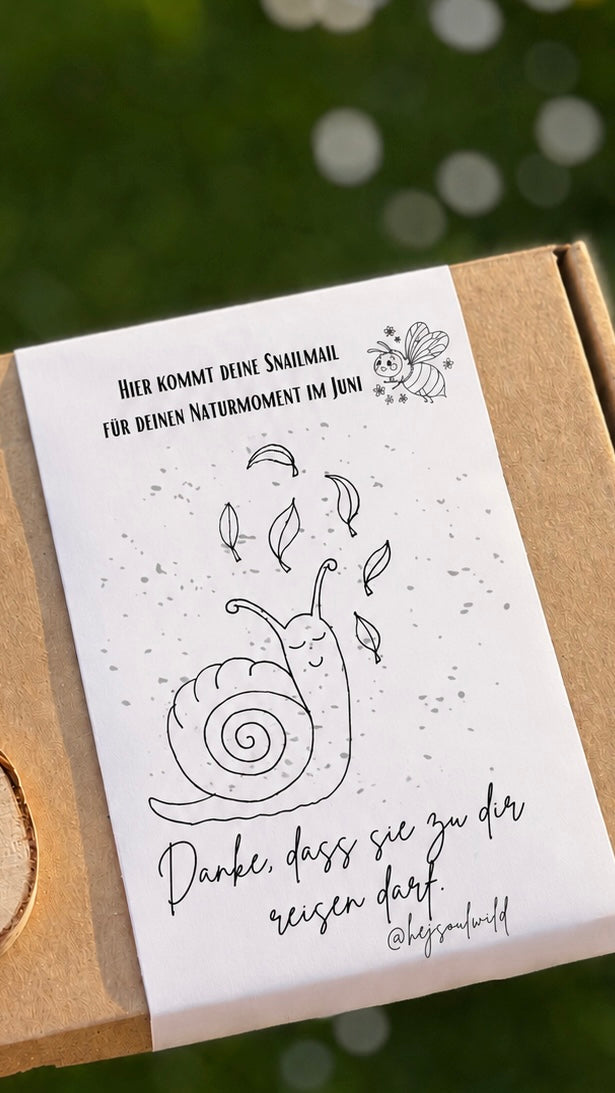 Hier kommt deine Snailmail
für deinen Naturmoment im Juni
Danke, dass sie zu dir
reisen darf.
@hejsoulwild